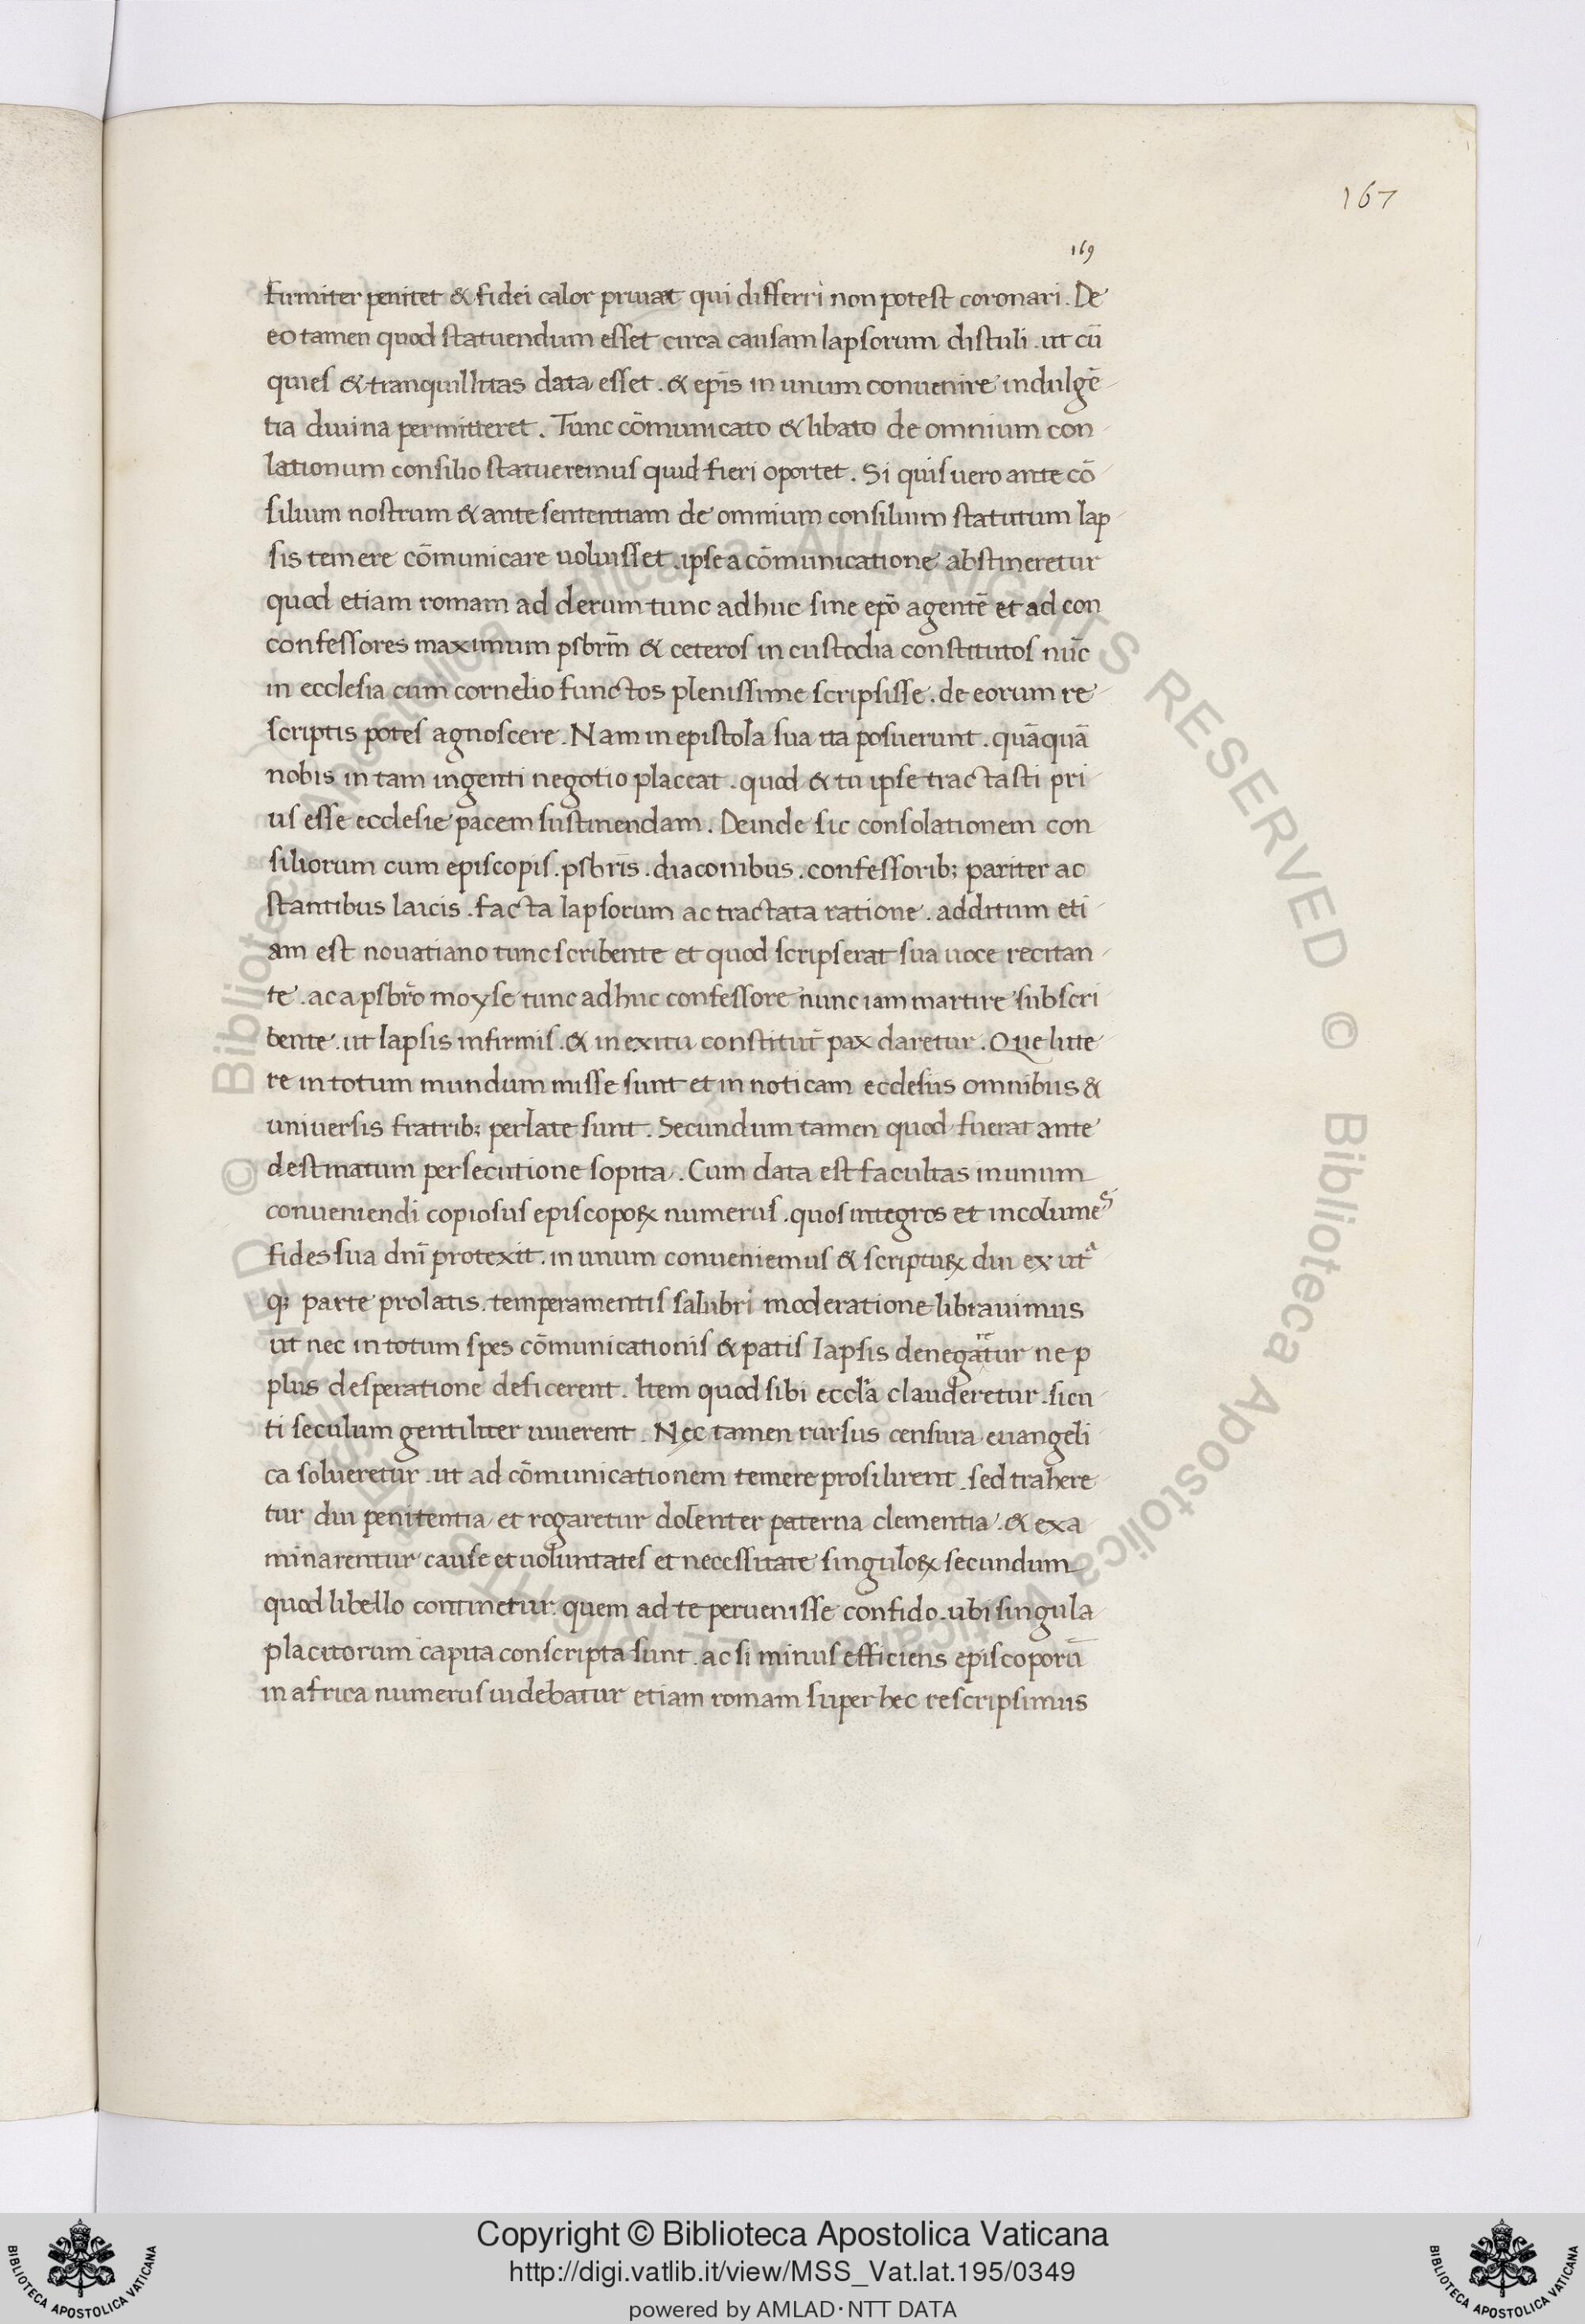 167
169
firmiter penitet & fidei calor priuat qui differri non potest coronari . De
eo tamen quod statuendum esset circa causam lapsorum distuli . ut cū
quies & tranquillitas data esset . & epīs in unum conuenire indulgē
tia diuina permitteret . Tunc cōmunicato & libato de omnium con
lationum consilio statueremus quid fieri oportet . Si quis uero ante cō
silium nostrum & ante sententiam de omnium consilium statutum lap
sis temere cōmunicare uoluisset . ipse a cōmunicatione abstineretur
quod etiam romam ad derum tunc adhuc sine epō agentē et ad con
confessores maximum psbrm̄ & ceteros in custodia constitutos nūc
in ecclesia cum cornelio functos plenissime scripsisse . de eorum re
scriptis potes agnoscere . Nam in epistola sua ita posuerunt . quāquā
nobis in tam ingenti negotio placeat . quod & tu ipse tractasti pri
us esse ecclesie pacem sustinendam . Deinde sic consolationem con
siliorum cum episcopis . psbrīs . diaconibus . confessorib; pariter ac
stantibus laicis . facta lapsorum ac tractata ratione . additum eti
am est nouatiano tunc scribente et quod scripserat sua uoce recitan
te . ac a psbrō moyse tunc adhuc confessore nunc iam martire subscri
bente . ut lapsis infirmis . & in exitu constitut̄ pax daretur . Que litte
re in totum mundum misse sunt et in noticam ecclesiis omnibus &
universis fratrib; perlate sunt . Secundum tamen quod fuerat ante
destinatum persecutione sopita . Cum data est facultas in unum
conueniendi copiosus episcopoꝝ numerus . quos integros et incolumes
fides sua dnī protexit . in unum conueniemus & scriptuꝝ diu ex utᵃ
q; parte prolatis . temperamentis salubri moderatione librauimus
ut nec in totum spes cōmunicationis & patis lapsis denegaretur ne p
plus desperatione deficerent . Item quod sibi eccl'a clauderetur . sicu
ti seculum gentiliter uiuerent . Nec tamen rursus censura euangeli
ca solueretur . ut ad cōmunicationem temere prosilirent . sed trahere
tur diu penitentia et rogaretur dolenter paterna clementia . & exa
minarentur cause et uoluntates et necessitate singuloꝝ secundum
quod libello continetur . quem ad te peruenisse confido . ubi singula
placitorum capita conscripta sunt . ac si minus efficiens episcoporū
in africa numerus uidebatur etiam romam super hec rescripsimus
© Biblioteca Apostolica Vaticana ALL RIGHTS RESERVED © Biblioteca Apostolica Vaticana ALL RIGHTS RESERVED
Copyright © Biblioteca Apostolica Vaticana
http://digi.vatlib.it/view/MSS_Vat.lat.195/0349
powered by AMLAD·NTT DATA
BIBLIOTECA APOSTOLICA VATICANA
BIBLIOTECA APOSTOLICA VATICANA